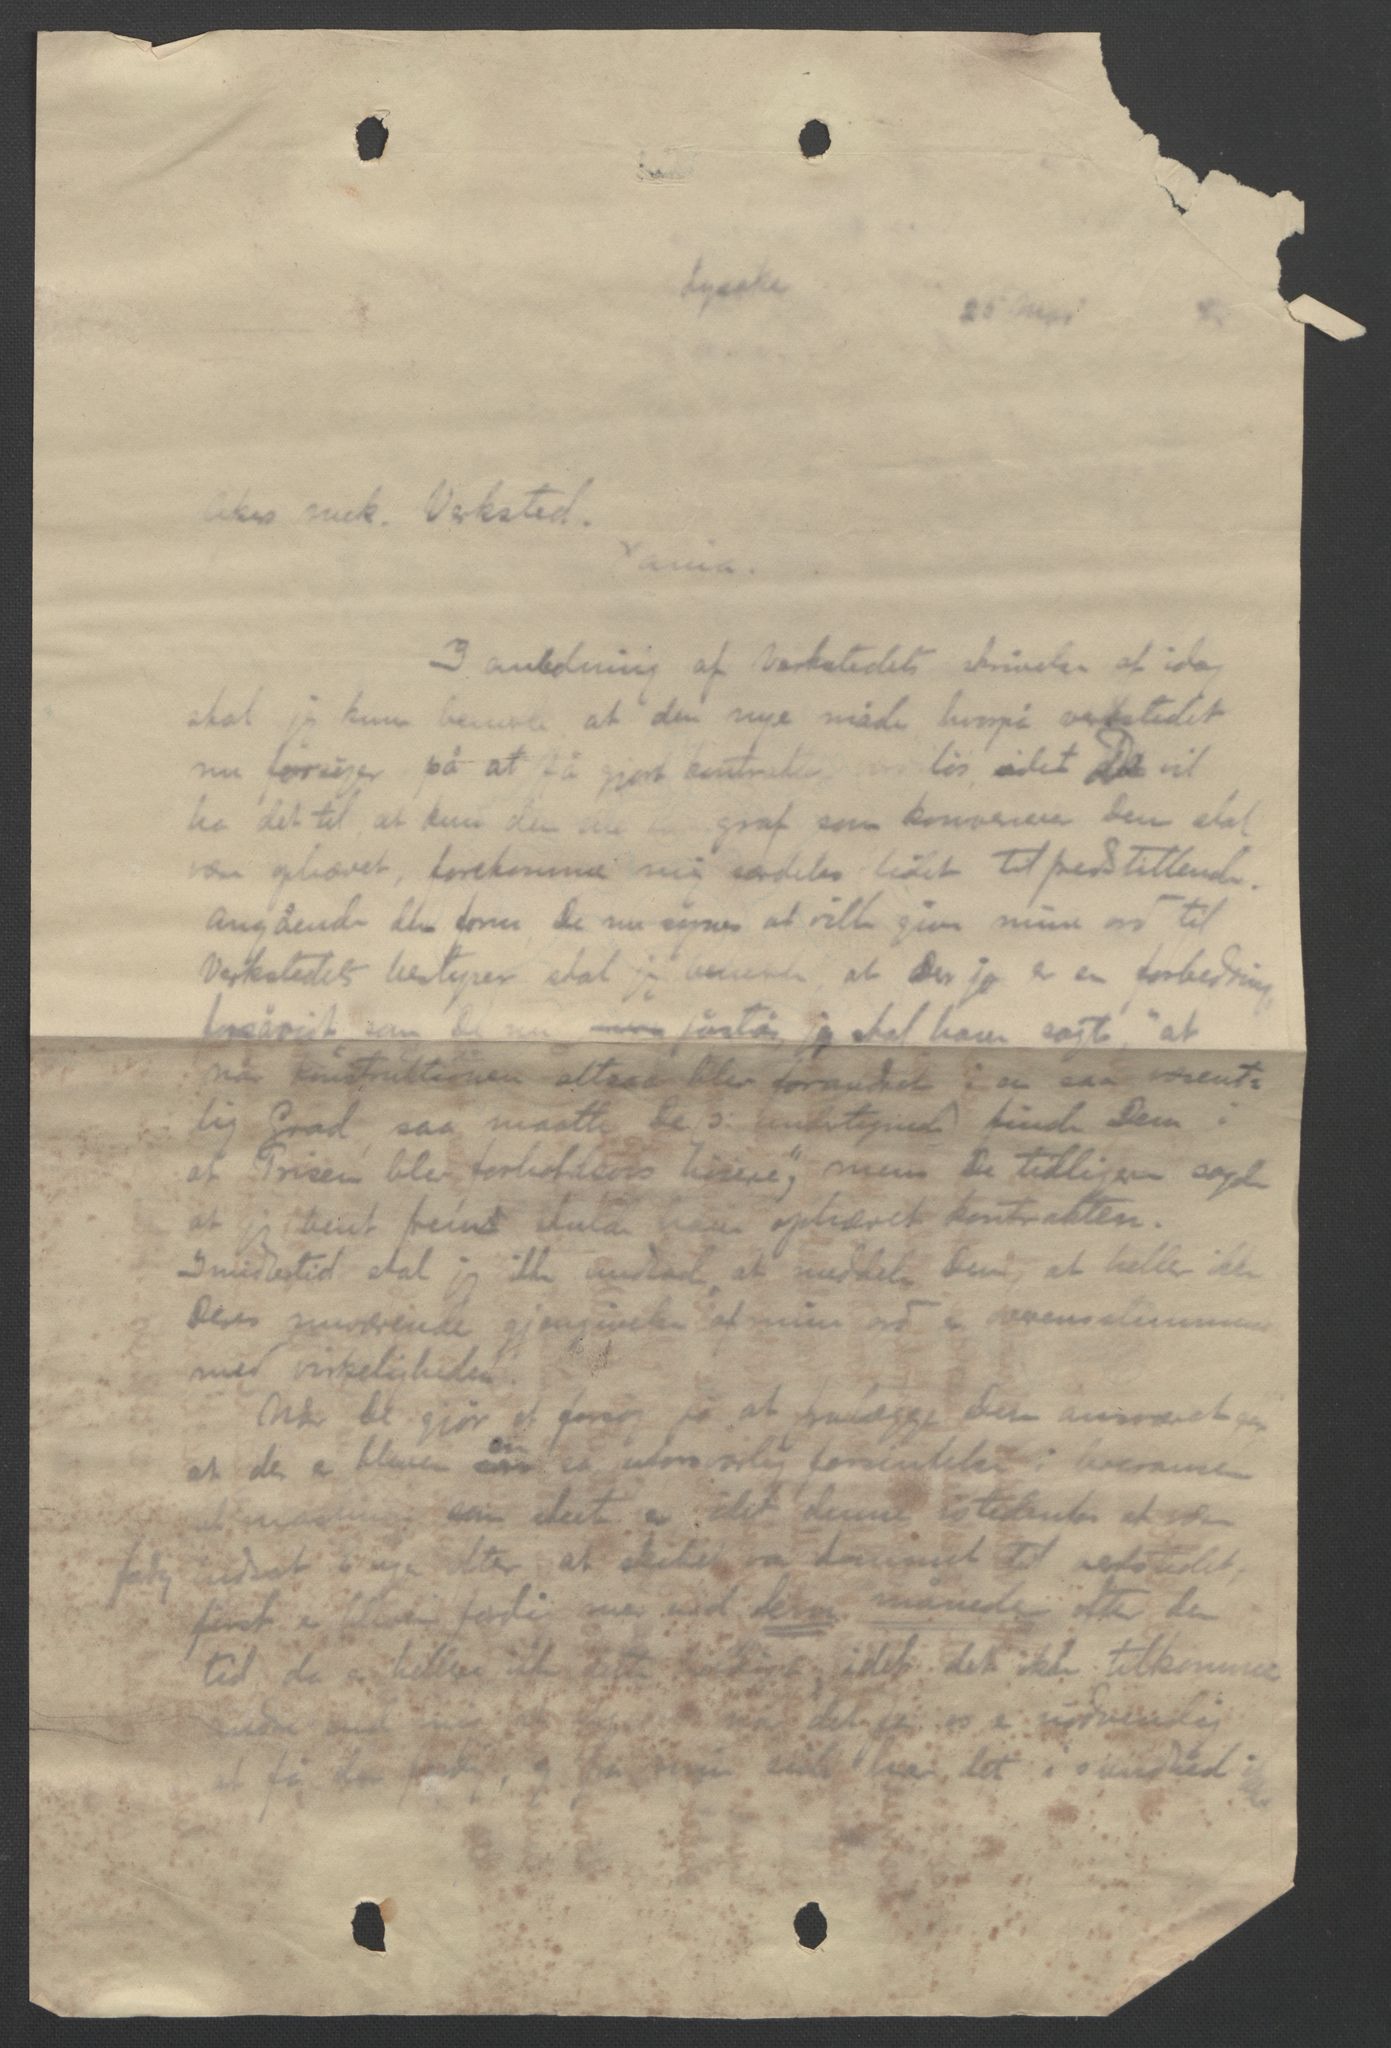 Lysaker
25 Mai
Akers mek. Verksted.
Xania.
I anledning af Verkstedets skrivelse af idag
skal jeg kun bemerke at den nye måde hvorpå verkstedet
nu forsøger på at få gjort kontrakten løs, idet De vil
ha det til, at kun den graf som konvenerer Dem skal
være ophævet, forekommer mig særdeles lidet tilfredsstillende.
Angående den form De nu synes at ville give mine ord til
Verkstedets bestyrer skal jeg bemerke, at der jo er en forbedring,
forsåvidt som De nu påstår, jeg skal have sagt, "at
når konstruktionen altsaa blev forandret i en saa væsent-
lig Grad, saa maatte De undertegnede finde Dem i
at Prisen blev forholdsvis høiere", mens De tidligere sagde
at jeg bent frem skulde have ophævet kontrakten.
Imidlertid skal jeg ikke undlade, at meddele Dem, at heller ikke
Deres nuværende gjengivelse af mine ord er overensstemmende
med virkeligheden.
Når De gjør et forsøg på at fralægge Dem ansvaret for
at der er bleven en så uforsvarlig forsinkelse i leverancen
af maskinen som skeet er, idet denne istedenfor at være
færdig indsat 6 uger efter, at skibet var kommet til verkstedet,
først er bleven færdig mer end måneder efter den
tid, da er heller ikke dette heldigt, idet det ikke tilkommer
andre end mig at når det for os er nødvendig
at få den færdig, og fra min side har det i sandhed ikke